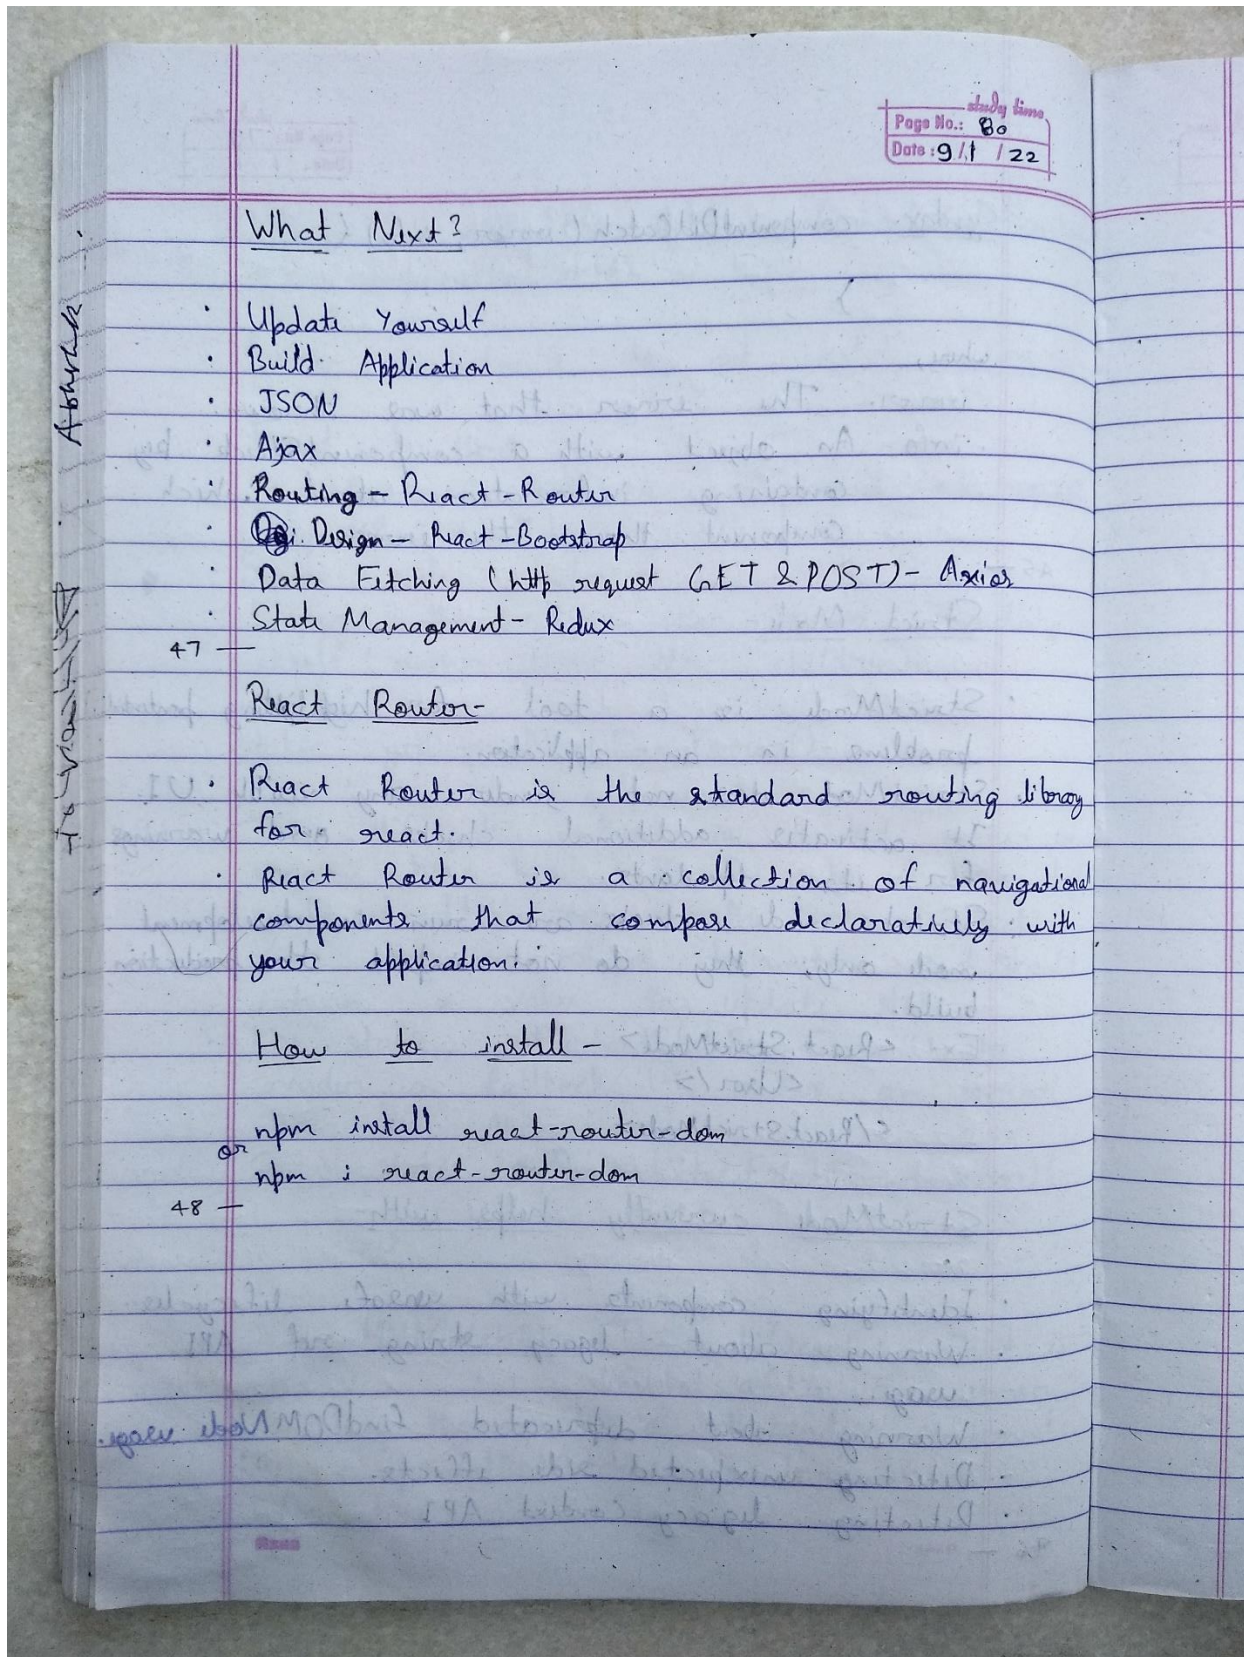 study time
Page No.: 80
Date : 9 / 1 / 22
What Next?
· Update Yourself
· Build Application
· JSON
· Ajax
· Routing - React-Router
· Design - React-Bootstrap
· Data Fetching (http request GET & POST) - Axios
· State Management - Redux
47 —
React Router-
· React Router is the standard routing library
for react.
· React Router is a collection of navigational
components that compose declaratively with
your application.
How to install -
npm install react-router-dom
or
npm i react-router-dom
48 —